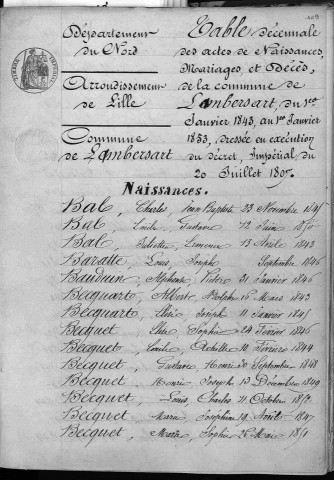 Département
du Nord
Arrondissement
de Lille
Commune
de Lambersart
Table décennale
des actes de Naissances,
Mariages, et Décès,
de la commune de
Lambersart, du 1er
Janvier 1843, au 1er Janvier
1853, dressée en exécution
du décret, Impérial du
20 Juillet 1807.
Naissances.
Bal, Charles Jean Baptiste 23 Novembre 1845
Bal, Emile Gustave 12 Juin 1850
Bal, Juliette 13 Avril 1843
Baratte, Louis Joseph Septembre 1846
Bauduin, Alphonse Victor 31 Janvier 1846
Becquart, Albert Adolphe 16 Mars 1843
Becquart, Joseph 11 Janvier 1845
Becquet, Sophie 24 Février 1846
Becquet, Emile Achille 10 Février 1844
Becquet, Gustave Henri 30 Septembre 1848
Becquet, Henri Joseph 13 Décembre 1849
Becquet, Louis Charles 21 Octobre
Becquet, Marie Joséphine 19 Avril 1847
Becquet, Marie Sophie 26 Mars 1851